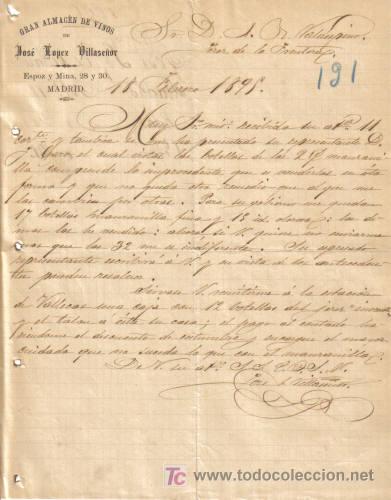 GRAN ALMACÉN DE VINOS
DE
José Lopez Villaseñor
Espoz y Mina, 28 y 30.
MADRID
Sr. D. A. R.
Jerez de la Frontera
191
18 Febrero 1898.
Muy Sr. mio: recibida su at.ª 11
cor.te y tambien se me ha presentado su representante D.
el cual vistas las botellas de las 24 manzani
lla comprende lo improcedente que es venderlas en esta
forma y que no queda otro remedio que el que me
las cambien por otras. Para su gobierno me quedan
17 botellas manzanilla fina y 15 id. las de
mas las he vendido: ahora si V. quiere me
que las 32 me es indiferente. Su
representante escribirá á V. y en vista de los anteceden
tes pueden resolver.
Sirvase V. remitirme á la estacion
de Vallecas una caja con 12 botellas del jerez
y el talon á esta su casa; y el pago al contado ha
ciendome el descuento de costumbre y encargue el mayor
cuidado que no suceda lo que con el manzanilla.
De V. su at.º S. S. Q. B. S. M.
José L. Villaseñor
TC
todocoleccion
www.todocoleccion.net